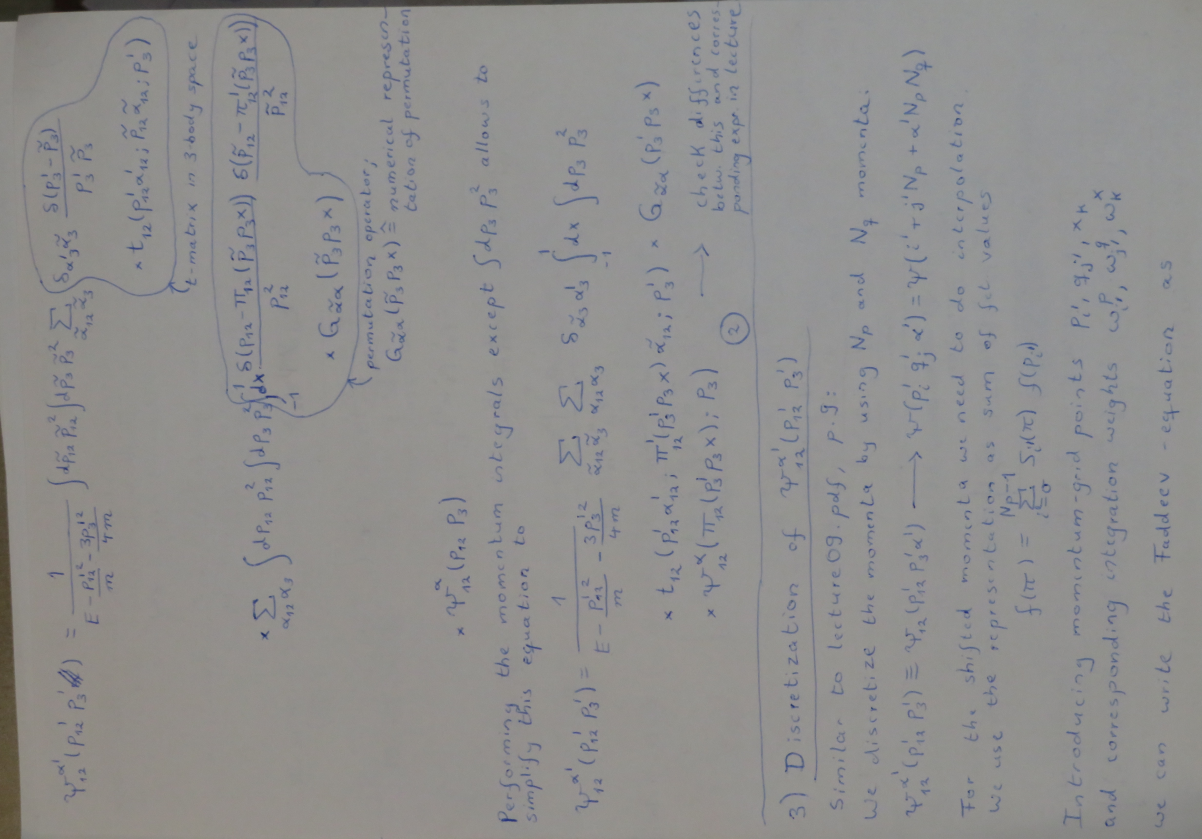 Ψ₁₂^α'(p₁₂' p₃') = 1/(E - p₁₂'²/m - 3p₃'²/4m) ∫dp̃₁₂ p̃₁₂² ∫dp̃₃ p̃₃² Σ_{α̃₁₂ α̃₃} δ_{α̃₃ α₃'} δ(p₃' - p̃₃)/(p₃' p̃₃)
× t₁₂(p₁₂' α₁₂'; p̃₁₂ α̃₁₂; p₃')
t-matrix in 3-body space
× Σ_{α₁₂ α₃} ∫dp₁₂ p₁₂² ∫dp₃ p₃² ∫₋₁¹ dx δ(p₁₂ - π₁₂(p̃₃ p₃ x))/p₁₂² δ(p̃₁₂ - π₁₂'(p̃₃ p₃ x))/p̃₁₂²
× G_{α̃α}(p̃₃ p₃ x)
permutation operator;
G_{α̃α}(p̃₃ p₃ x) ≙ numerical represen-
tation of permutation
× Ψ₁₂^α(p₁₂ p₃)
Performing the momentum integrals except ∫dp₃ p₃² allows to
simplify this equation to
Ψ₁₂^α'(p₁₂' p₃') = 1/(E - p₁₂'²/m - 3p₃'²/4m) Σ_{α̃₁₂ α̃₃} Σ_{α₁₂ α₃} δ_{α̃₃ α₃'} ∫₋₁¹ dx ∫dp₃ p₃²
× t₁₂(p₁₂' α₁₂'; π₁₂'(p₃' p₃ x) α̃₁₂; p₃') × G_{α̃α}(p₃' p₃ x)
× Ψ₁₂^α(π₁₂(p₃' p₃ x); p₃)
② → check differences
betw. this and corres-
ponding expr. in lecture
3) Discretization of Ψ₁₂^α'(p₁₂' p₃')
Similar to lecture09.pdf, p.9:
We discretize the momenta by using Np and Nq momenta:
Ψ₁₂^α'(p₁₂' p₃') ≡ Ψ₁₂(p₁₂' p₃' α') → Ψ(p_i' q_j' α') ≡ Ψ(i' + j'Np + α'NpNq)
For the shifted momenta we need to do interpolation.
We use the representation as sum of fct values
f(π) = Σ_{i'=0}^{Np-1} S_i'(π) f(p_i')
Introducing momentum-grid points p_i', q_j', x_k
and corresponding integration weights ω_i'^p, ω_j'^q, ω_k^x
we can write the Faddeev-equation as